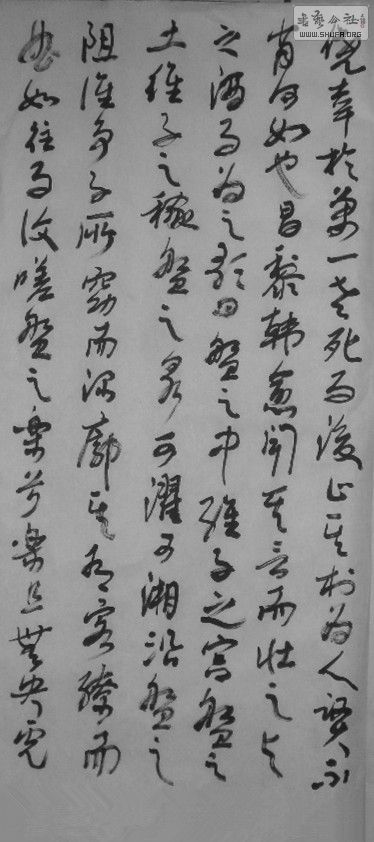 书艺公社
WWW.SHUFA.ORG
僥幸於萬一老死而後止其於为人賢不
肖何如也昌黎韩愈聞其言而壮之与
之酒而为之歌曰盤之中維子之宫盤之
土維子之稼盤之泉可濯可湘沿盤之
阻誰争子所窈而深廓其有容繚而
曲如往而復嗟盤之樂兮樂且無央虎